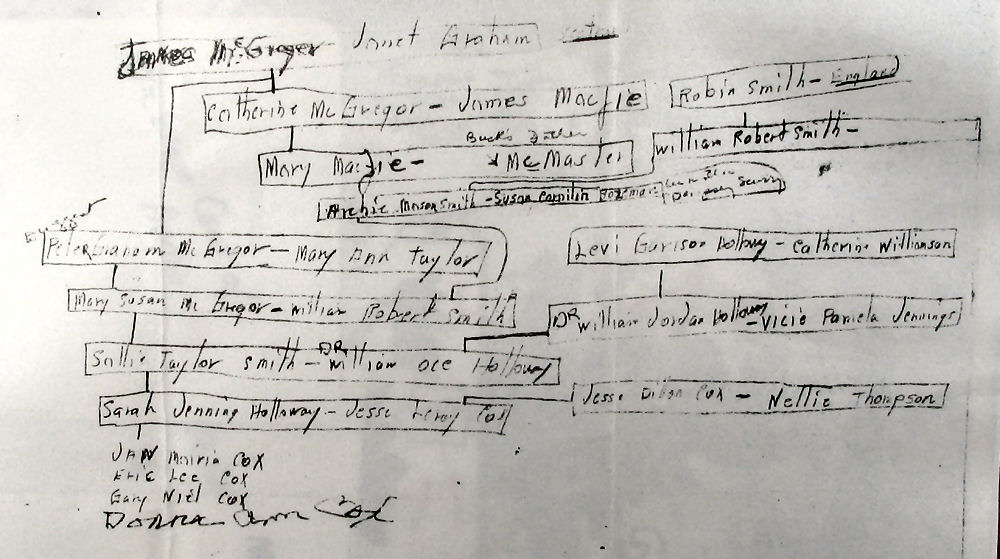 James McGregor - Janet Graham
Catherine McGregor - James MacFie
Robin Smith - England
Buck's Father
Mary MacFie - McMaster
William Robert Smith -
Archie Monson Smith - Susan Bozeman
Peter Graham McGregor - Mary Ann Taylor
Levi Garison Holloway - Catherine Williamson
Mary Susan McGregor - William Robert Smith
DR William Jordan Holloway - Vicie Pamela Jennings
Sallie Taylor Smith - DR William Oce Holloway
Sarah Jenning Holloway - Jesse Leroy Cox
Jesse Dilion Cox - Nellie Thompson
JAN Mairia COX
Eric Lee COX
Gary Niel COX
Donna Ann Cox